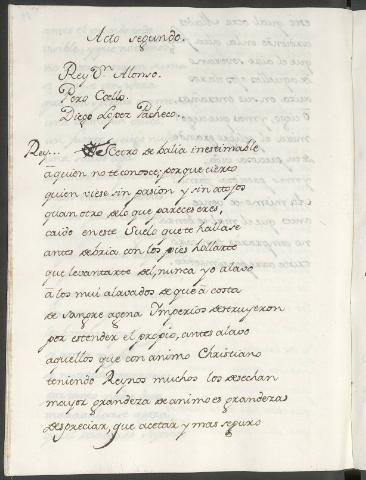 Acto segundo.
Rey Dn Alonso.
Pero Coello.
Diego Lopez Pacheco.
Rey... Cetro de balia inestimable
a quien no te conoce; porque cierto
quien viese sin pasion y sin atojos
quan otro delo que pareces eres,
caido en este Suelo que te hallase
antes debria con los pies hollarte
que levantarte del, nunca yo alavo
a los mui alavados de que a costa
de sangre agena Imperios destruyeron
por estender el propio, antes alavo
aquellos que con animo Christiano
teniendo Reynos muchos los desechan
mayor grandeza de animo es grandezas
despreciar, que acetar y mas seguro